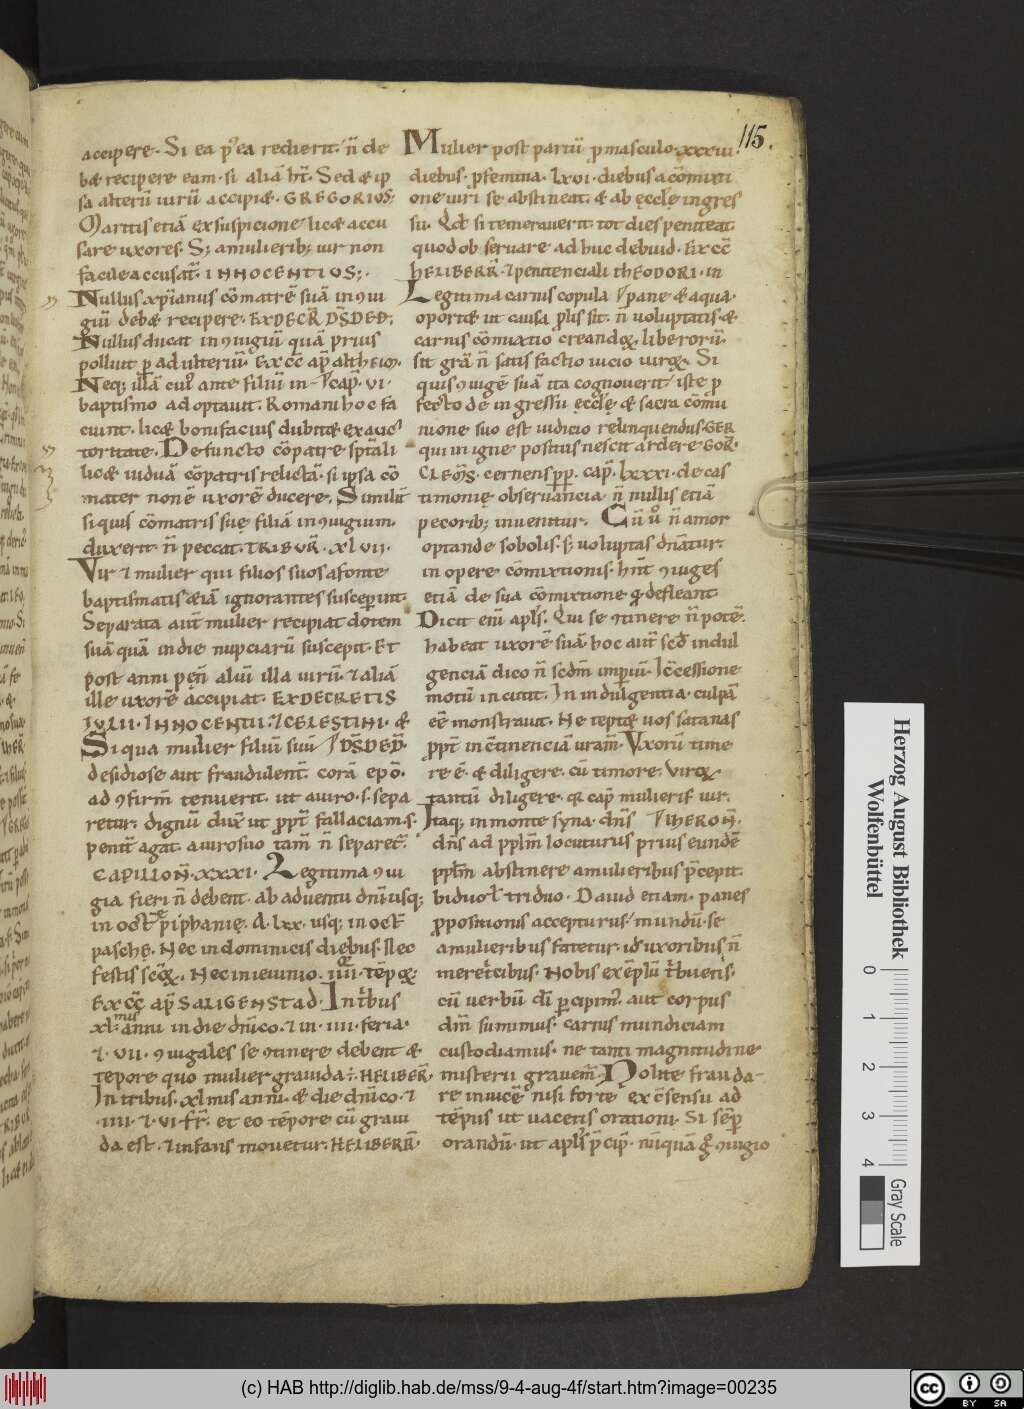 115.
accipere. Si ea p᷒ ea redierit. n̄ de
bæ recipere eam. si aliā ht̄. Sed & ip
sa alterū uirū accipiæ. GREGORIUS;
Mariti etiā ex suspicione licæ accu
sare uxores. S; a mulierib; uir non
facile accusat̄. INNOCENTIUS;.
Nullus xp̄ianus cōmatrē suā in ꝯiu
giū debæ recipere. EX DECR̄
Nullus ducat in ꝯiugiū quā prius
polluit ꝑ adulteriū. EX CC̄ ap̄ altheim.
Neq; illā cui᷒ ante filiū in cap̄. VI.
baptismo adoptauit. Romani hoc fa
ciunt. licæ bonifacius dubitæ ex auc
toritate. Defuncto cōpatre spt̄ali
licæ uiduā cōpatris relictā. si ipsa cō
mater non ē uxorē ducere. Similit̄
si quis cōmatris suę filiā in ꝯiugium.
duxerit n̄ peccat. TRIBUR̄. XLVII.
Vir & mulier qui filios suos a fonte
baptismatis æiā ignorantes susceperint.
Separata aut̄ mulier recipiat dotem
suā quā in die nupciarū suscepit. Et
post anni alium illa uirū. & aliā
ille uxorē accipiat. EX DECRETIS
IULII. INNOCENTII. & CELESTINI. &
Si qua mulier filiū suū
desidiose aut fraudulent̄. corā ep̄o.
ad ꝯfirm̄ tenuerit. ut a uiro. s. sepa
retur. dignū dux̄ ut ppt̄ fallaciam. s.
penit̄ agat. a uiro suo tam̄ n̄ separet̄.
CAPILLON̄. XXXI. Legitima ꝯiu
gia fieri n̄ debent. ab aduentu dn̄i usq;
in oct̄ epiphanię. & LXX. usq; in oct̄
paschę. Nec in dominicis diebus. Nec
festis scōꝝ. Nec in ieiunio. IIII. tēpoꝝ.
EX CC̄ ap̄ SALIGENSTAD. In trib᷒
XLmus anni in die dn̄ico. & in. IIII. feria.
& VII. ꝯiugales se ꝯtinere debent &
tēpore quo mulier grauida. HELIBER̄.
In tribus. XLmus anni. & die dn̄ico. &
. IIII. & VI. fr̄. et eo tēpore cū graui
da est. & infans mouetur. HELIBERR̄.
Mulier post partū p masculo. XXXIII.
diebus. p femina. LXVI. diebus a cōmixti
one uiri se abstineat. & ab ęcclę ingres
su. Qd̄ si temerauerit. tot dies peniteat.
quod ob seruare ad huc debuid. EX CC̄
HELIBERR̄. & penitenciali THEODORI. in
Legitima carnis copula & aqua.
oportæ ut causa plis sit. n̄ uoluptatis &
carnis cōmixtio creandoꝝ. liberorū
sit grā n̄ satis factio uicio uiroꝝ. Si
quis ꝯiugē suā ita cognouerit iste p
fecto de ingressu ęcclę & sacra cōmu
nione suo est iudicio relinquendus. GER
qui in igne positus nescit ardere.
cernens PP. cap̄. LXXXI. de cas
timonię obseruancia. n̄ nullis etiā
pecorib; inuenitur. Cū u᷒ n̄ amor
optande sobolis. s; uoluptas dn̄atur.
in opere cōmixtionis. hn̄t ꝯiuges
etiā de sua cōmixtione qd̄ defleant.
Dicit enī apl̄s. Qui se ꝯtinere n̄ potē.
habeat uxorē suā. hoc aut̄ scd̄ indul
genciā dico n̄ scdm̄ imperiū. Incessione
motū incutit. In indulgentia. culpā
eē monstrauit. Ne teptæ uos satanas
ppt̄ incōtinenciā uram̄. Vxorū time
re ē. & diligere. cū timore. uiroꝝ
tantū diligere. q̄ cap̄ mulieris uir.
Itaq; in monte syna. dn̄s IHERON̄.
dn̄s ad pplm̄ locuturus prius eundē
pplm̄ abstinere a mulieribus p̄cepit.
biduo ł triduo. Dauid etiam. panes
ppositionis accepturus mundū. se
a mulieribus fatetur. id uxoribus n̄
meretcibus. Nobis exēplū tbuens.
cū uerbū dī percipim᷒. aut corpus
dn̄i sumimus. carnis mundiciam
custodiamus. ne tanti magnitudine
misterii grauem̄. Nolite frauda-
re inuicē nisi forte ex cēsensu ad
tēpus ut uacetis orationi. Si sēp̄
orandū. ut apl̄s p̄cip̄. nūquā ꝯiugio
Herzog August Bibliothek
Wolfenbüttel
0 1 2 3 4
Gray Scale
(c) HAB http://diglib.hab.de/mss/9-4-aug-4f/start.htm?image=00235
cc BY SA